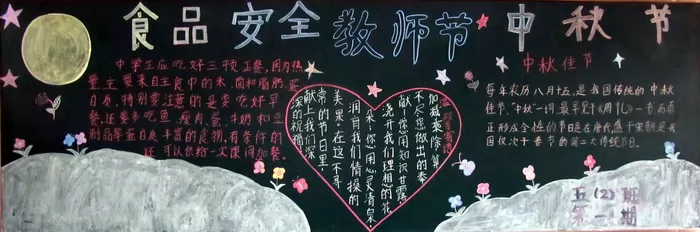 食品安全 教师节 中秋节
中学生应吃好三顿正餐,因为热
量主要来自主食中的米、面和脂肪、蛋
白质,特别要注意的是要吃好早
餐,还要多吃鱼、瘦肉、蛋、牛奶和豆
制品等蛋白质丰富的食物,有条件的
还可以供给一次课间加餐。
加减乘除,算
不尽您做出的奉
献!您用知识甘露,
浇开我们理想的花
朵;您用心灵清泉,
润育我们情操的
美果,在这不寻
常的节日里,
献上我们深
深的祝福
中秋佳节
每年农历八月十五,是我国传统的中秋
佳节。“中秋”一词,最早见于《周礼》一书,而真
正形成全国性的节日是在唐代,盛于宋朝,是我
国仅次于春节的第二大传统节日。
五(2)班
第一期